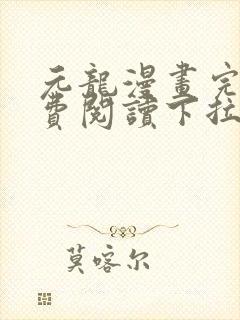 元龍漫畫完
費閱讀下拉
莫喀尔